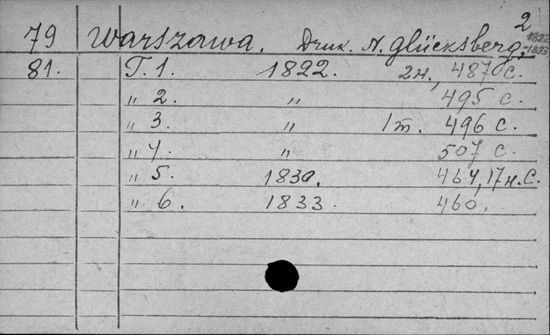 2
79 Warszawa. Druk. N. Glücksberg, 1822-1833
81. T. 1. 1822. 2н., 487 с.
„ 2. „ 495 с.
„ 3. „ 1 т. 496 с.
„ 4. „ 507 с.
„ 5. 1830. 464, 17 н. с.
„ 6. 1833. 460.